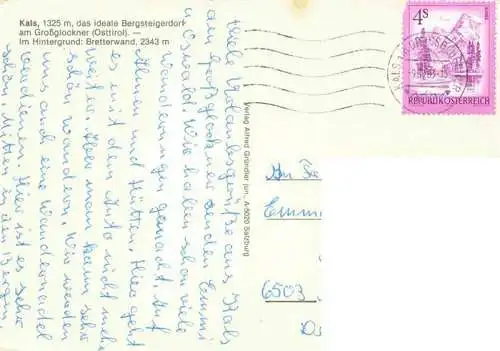 Kals, 1325 m, das ideale Bergsteigerdorf
am Großglockner (Osttirol). —
Im Hintergrund: Bretterwand, 2343 m
4 S
REPUBLIK ÖSTERREICH
KALS
Viele Urlaubsgrüße aus Kals
am Großglockner senden Emmi
u. Oswald. Wir haben schon viele
Wanderungen gemacht. Auf
Almen und Hütten. Hier geht
es mit dem Auto nicht mehr
weiter. Aber man kann sehr
schön wandern. Wir werden
uns auch eine Wandernadel
verdienen. Hier ist es sehr
schön. Mitten in den Bergen.
Verlag Alfred Gründler jun., A-5020 Salzburg
An
Emm
6503